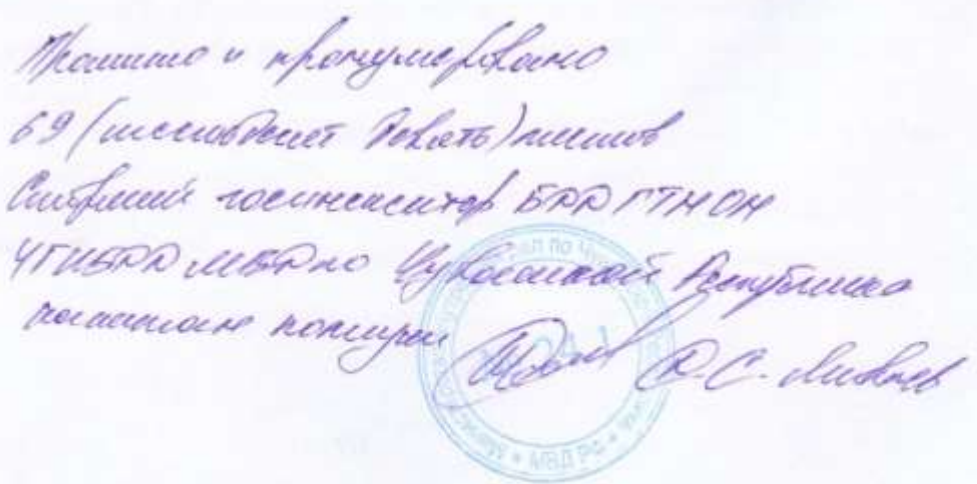 Прошито и пронумеровано
69 (шестьдесят девять) листов
Старший госинспектор БДД ГТН ОН
УГИБДД МВД по Чувашской Республике
капитан полиции
МВД РФ